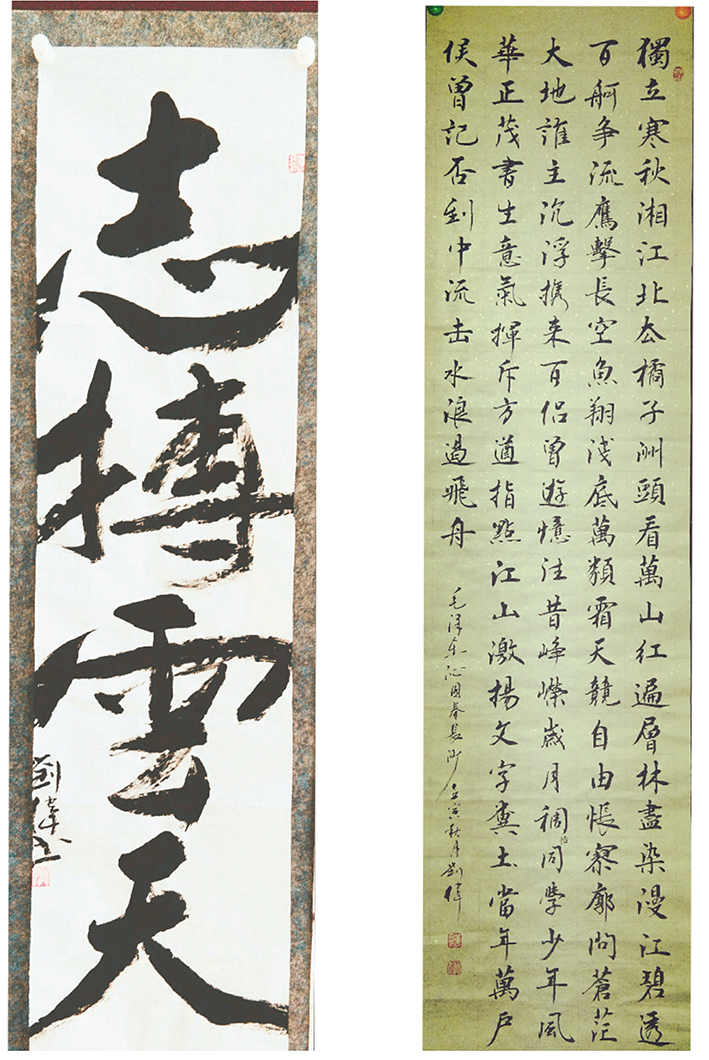 志搏雲天
劉偉书
獨立寒秋湘江北去橘子洲頭看萬山紅遍層林盡染漫江碧透
百舸争流鷹擊長空魚翔浅底萬類霜天競自由悵寥廓問蒼茫
大地誰主沉浮携来百侣曾遊憶往昔峥嶸歲月稠恰同學少年風
華正茂書生意氣揮斥方遒指點江山激揚文字糞土當年萬户
侯曾記否到中流击水浪遏飛舟
毛泽东沁园春長沙 壬寅秋月劉偉